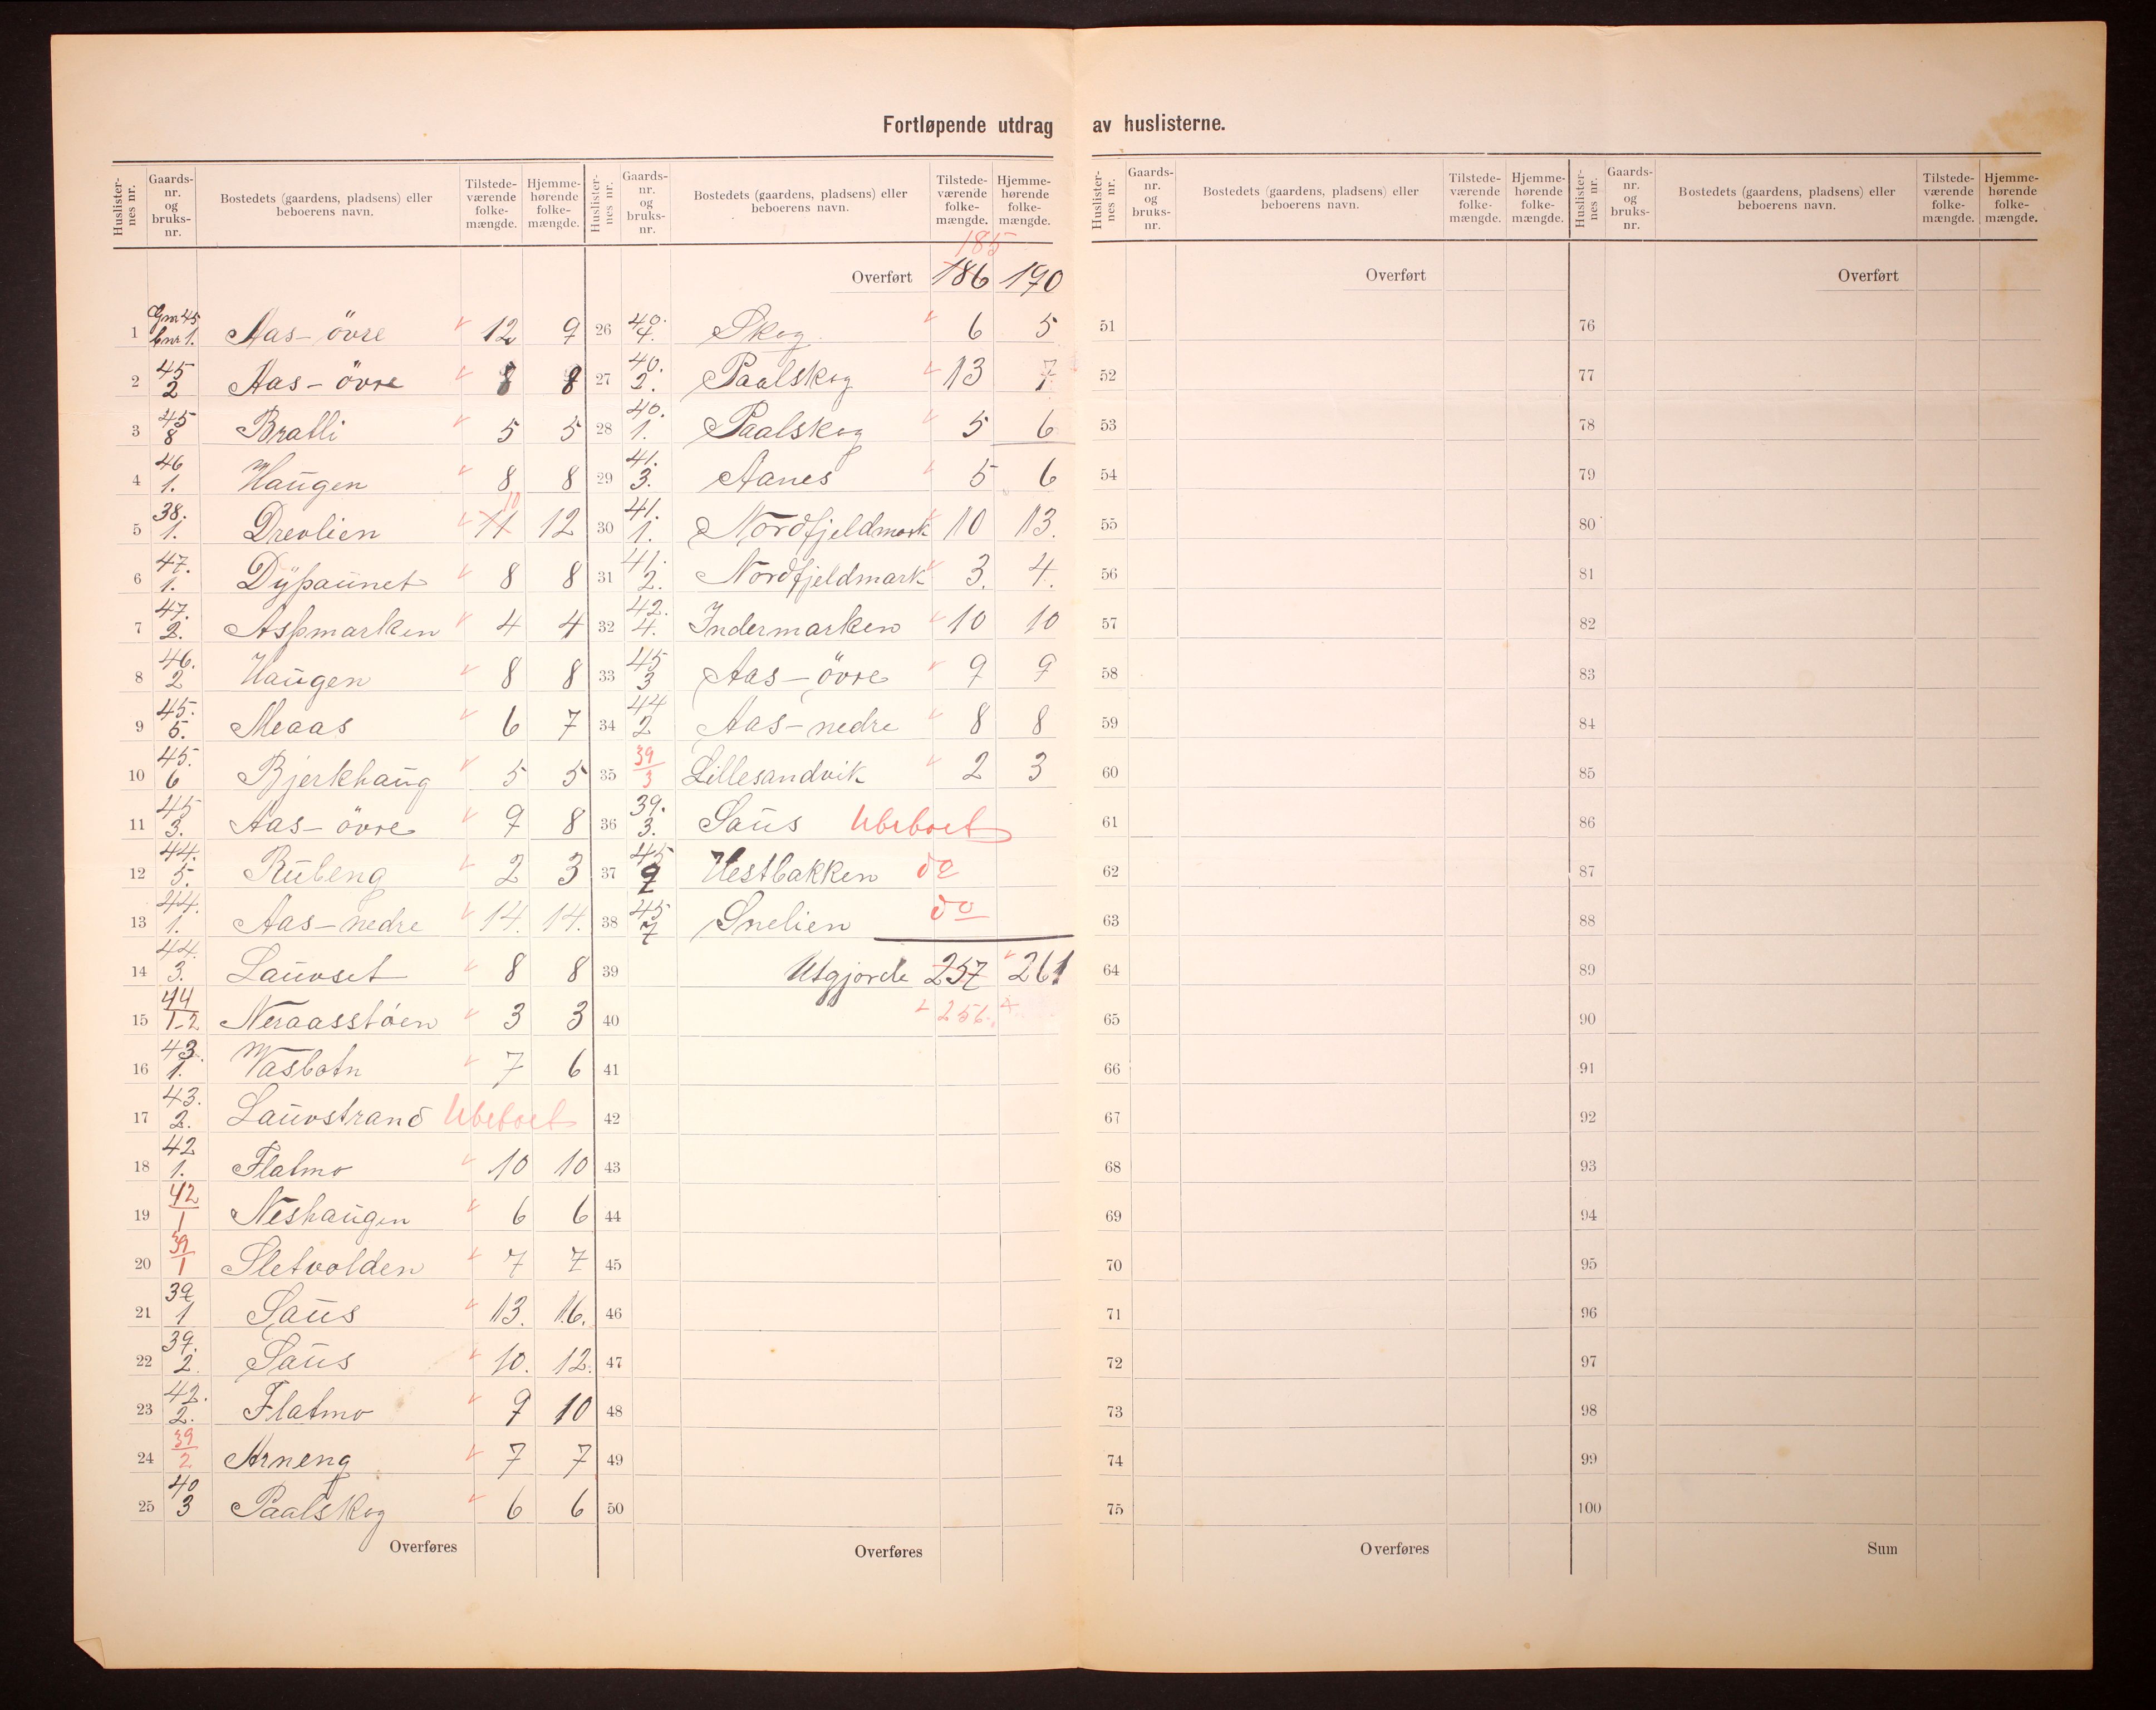 Fortløpende utdrag av huslisterne.
Huslister-nes nr. Gaards-nr. og bruks-nr. Bostedets (gaardens, pladsens) eller beboerens navn. Tilstede-værende folke-mængde. Hjemme-hørende folke-mængde.
1 Gnr 45 bnr 1. Aas-övre 12 9
2 45 2 Aas-övre 8 8
3 45 8 Bratli 5 5
4 46 1. Haugen 8 8
5 38. 1. Drevlien 11 10 12
6 47. 1. Dypaunet 8 8
7 47. 2. Aspmarken 4 4
8 46. 2 Haugen 8 8
9 45. 5. Meaas 6 7
10 45. 6 Bjerkhaug 5 5
11 45 3. Aas-övre 9 8
12 44. 5. Rubeng 2 3
13 44. 1. Aas-nedre 14. 14.
14 44. 3. Lauvset 8 8
15 44 1-2 Neraasstöen 3 3
16 43. 1. Vasbotn 7 6
17 43. 2. Lauvstrand Ubeboet
18 42 1. Flatmo 10 10
19 42 1 Neshaugen 6 6
20 39 1 Sletvolden 7 7
21 39 1 Saus 13. 16.
22 39. 2. Saus 10. 12.
23 42. 2. Flatmo 9 10
24 39 2 Arneng 7 7
25 40 3 Paalskog 6 6
Overføres
Huslister-nes nr. Gaards-nr. og bruks-nr. Bostedets (gaardens, pladsens) eller beboerens navn. Tilstede-værende folke-mængde. Hjemme-hørende folke-mængde.
185
Overført 186 190
26 40. 4. Skog 6 5
27 40. 2. Paalskog 13 7
28 40. 1. Paalskog 5 6
29 41. 3. Aanes 5 6
30 41. 1. Nordfjeldmark 10 13.
31 41. 2. Nordfjeldmark 3. 4.
32 42. 4. Indermarken 10 10
33 45 3 Aas-övre 9 9
34 44 2 Aas-nedre 8 8
35 39 3 Lillesandvik 2 3
36 39. 3. Saus Ubeboet
37 45 9 Hestbakken do
38 45 7 Snelien do
39 Utgjorde 257 261
40 256.
41
42
43
44
45
46
47
48
49
50
Overføres
Huslister-nes nr. Gaards-nr. og bruks-nr. Bostedets (gaardens, pladsens) eller beboerens navn. Tilstede-værende folke-mængde. Hjemme-hørende folke-mængde.
Overført
51
52
53
54
55
56
57
58
59
60
61
62
63
64
65
66
67
68
69
70
71
72
73
74
75
Overføres
Huslister-nes nr. Gaards-nr. og bruks-nr. Bostedets (gaardens, pladsens) eller beboerens navn. Tilstede-værende folke-mængde. Hjemme-hørende folke-mængde.
Overført
76
77
78
79
80
81
82
83
84
85
86
87
88
89
90
91
92
93
94
95
96
97
98
99
100
Sum